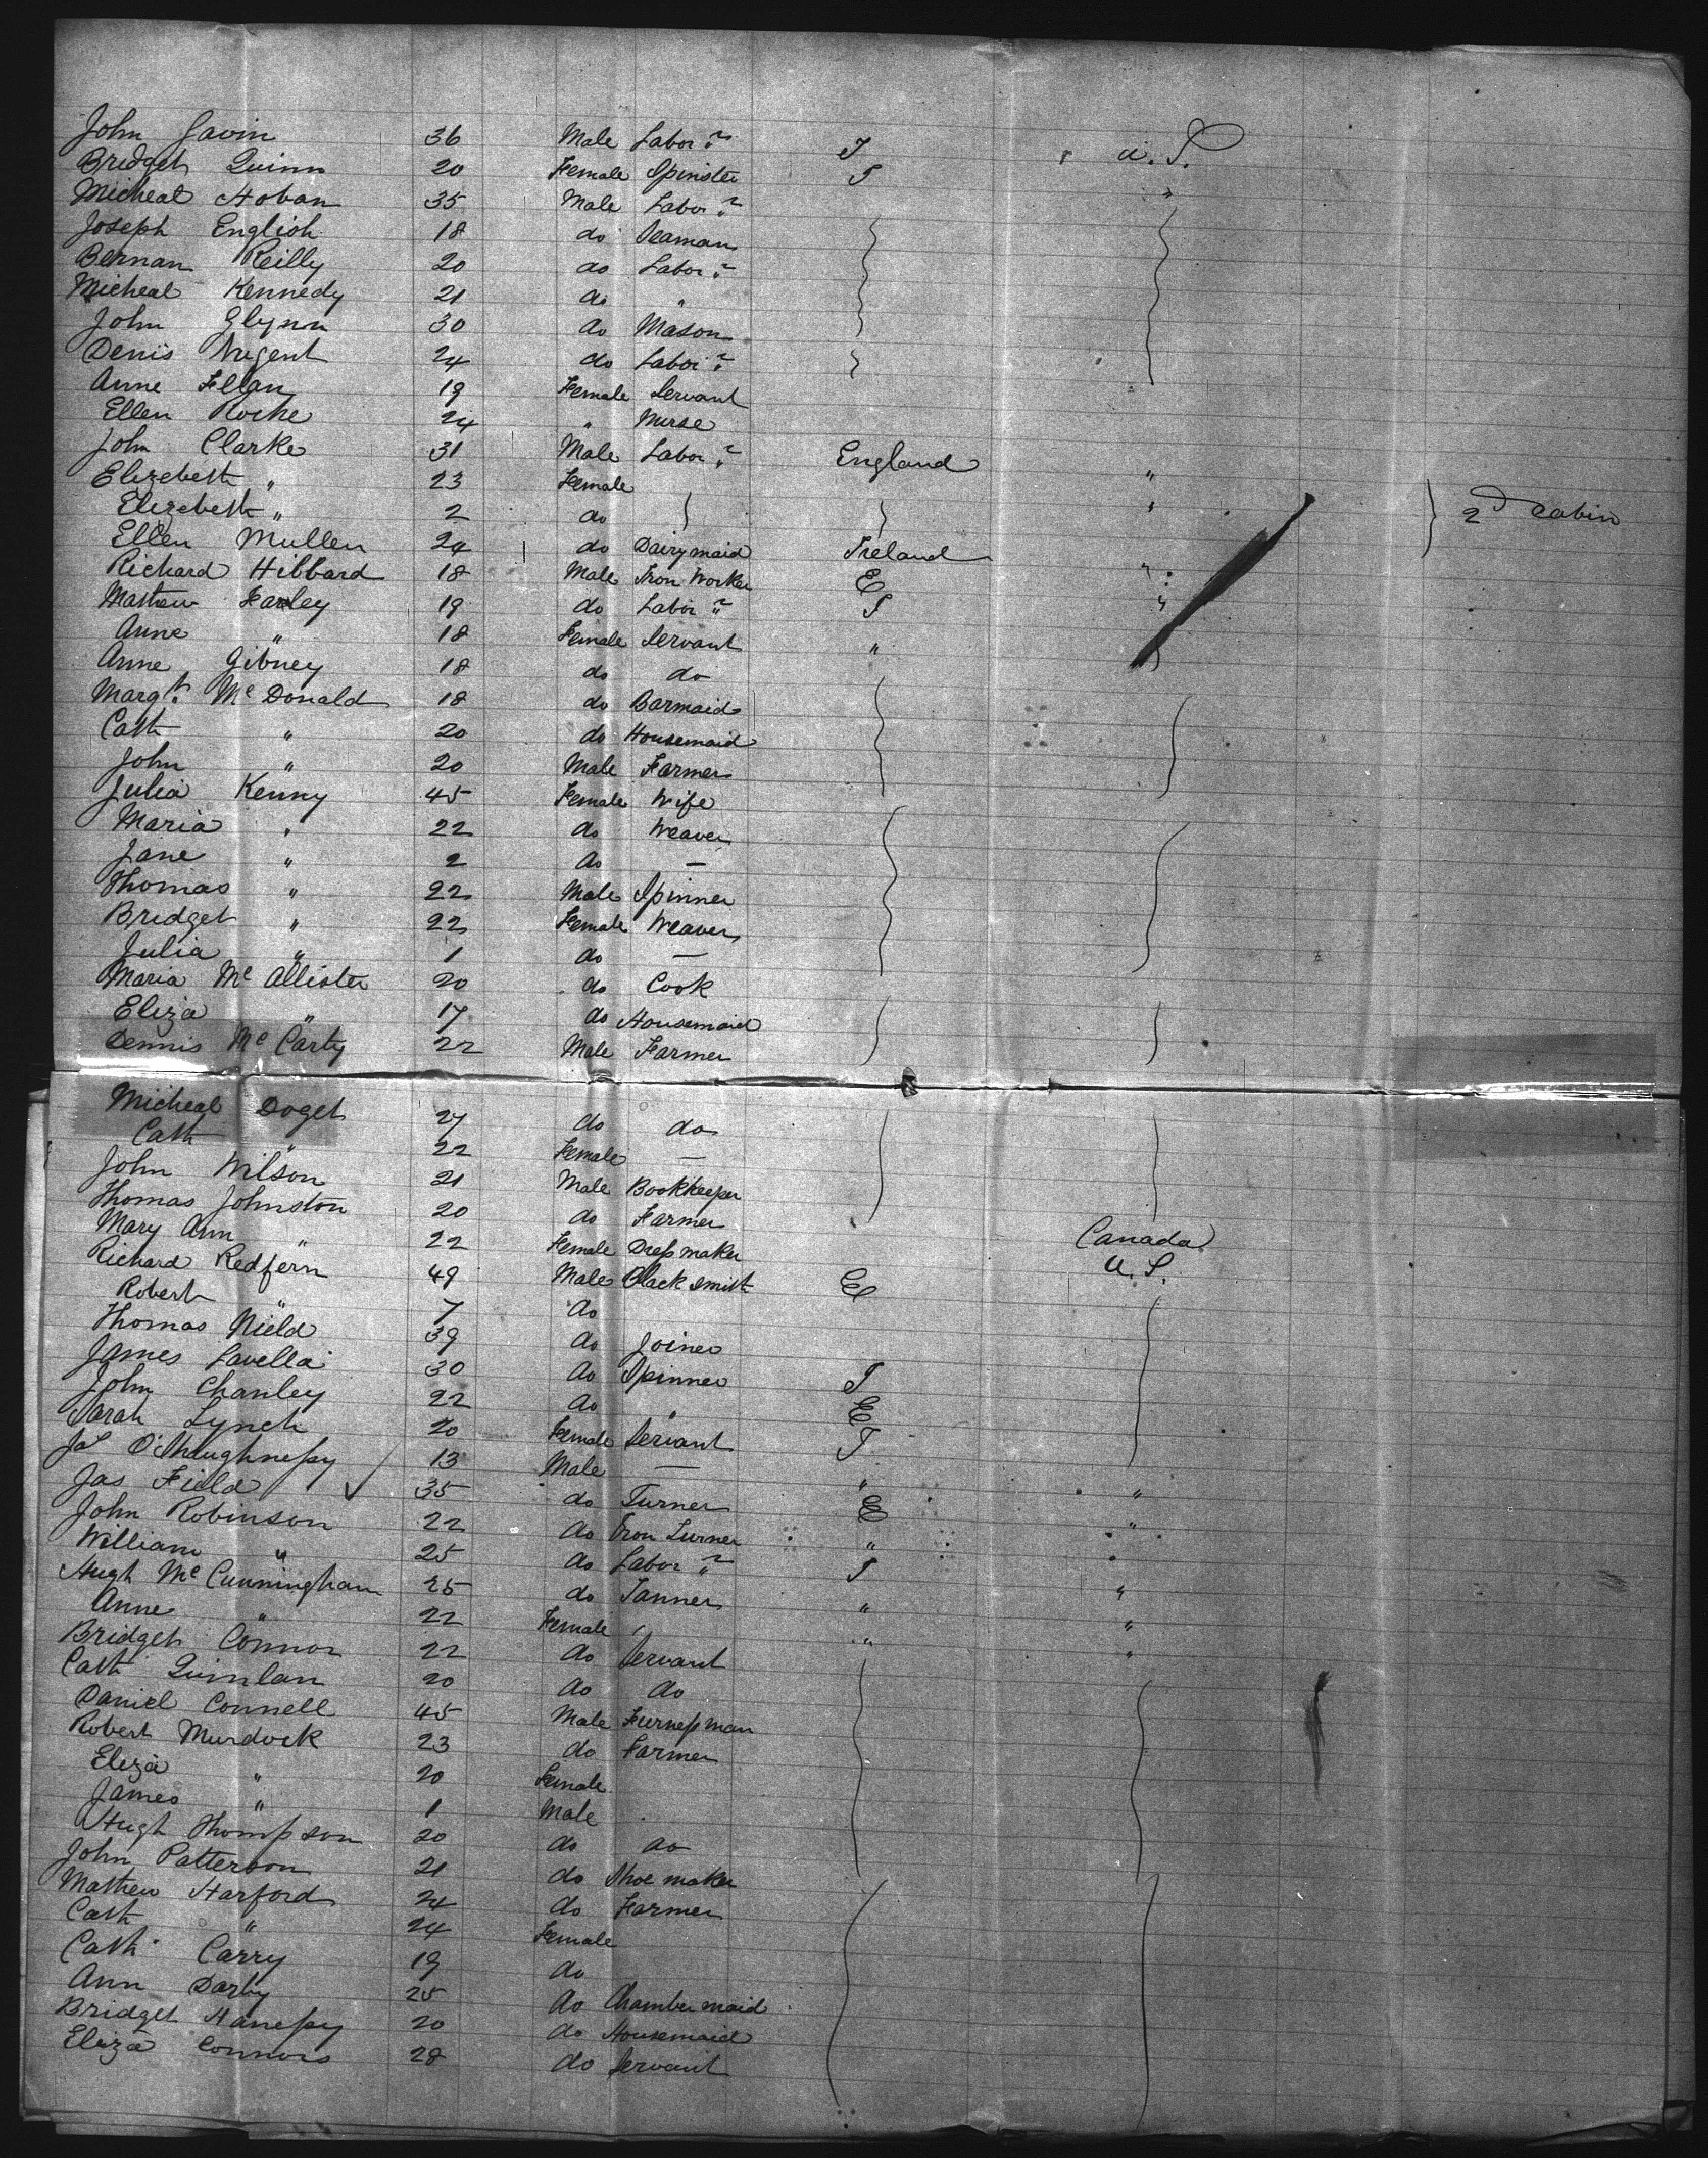 John Gavin 36 Male Labor " I U. S.
Bridget Quinn 20 Female Spinster I "
Micheal Hoban 35 Male Labor "
Joseph English 18 do Seaman
Bernan Reilly 20 do Labor "
Micheal Kennedy 21 do "
John Glynn 30 do Mason
Denis Nugent 24 do Labor "
Anne Fegan 19 Female Servant
Ellen Roche 24 " Nurse
John Clarke 31 Male Labor " England "
Elizebeth " 23 Female "
Elizebeth " 2 do 2nd Cabin
Ellen Mullen 24 do Dairymaid Ireland
Richard Hibbard 18 Male Iron Worker E "
Mathew Farley 19 do Labor " I "
Anne " 18 Female Servant "
Anne Gibney 18 do do
Margt. McDonald 18 do Barmaid
Cath " 20 do Housemaid
John " 20 Male Farmer
Julia Kenny 45 Female Wife
Maria " 22 do Weaver
Jane " 2 do —
Thomas " 22 Male Spinner
Bridget " 22 Female Weaver
Julia " 1 do —
Maria McAllister 20 do Cook
Eliza " 17 do Housemaid
Dennis McCarty 22 Male Farmer
Micheal Doget 27 do do
Cath " 22 Female —
John Wilson 21 Male Bookkeeper
Thomas Johnston 20 do Farmer
Mary Ann " 22 Female Dressmaker Canada
Richard Redfern 49 Male Blacksmith E U. S.
Robert " 7 do
Thomas Nield 39 do Joiner
James Lavella 30 do Spinner I
John Chanley 22 do " E
Sarah Lynch 20 Female Servant I
Jas O'Shaughnessy 13 Male — "
Jas Field 35 do Turner E "
John Robinson 22 do Iron Turner " "
William " 25 do Labor " I "
Hugh McCunningham 25 do Tanner " "
Anne " 22 Female " "
Bridget Connor 22 do Servant "
Cath Quinlan 20 do do
Daniel Connell 45 Male Furnessman
Robert Murdock 23 do Farmer
Eliza " 20 Female
James " 1 Male
Hugh Thompson 20 do do
John Patterson 21 do Shoe maker
Mathew Harford 24 do Farmer
Cath " 24 Female
Cath Carry 19 do
Ann Darby 25 do Chamber maid
Bridget Hanessy 20 do Housemaid
Eliza Connors 28 do Servant